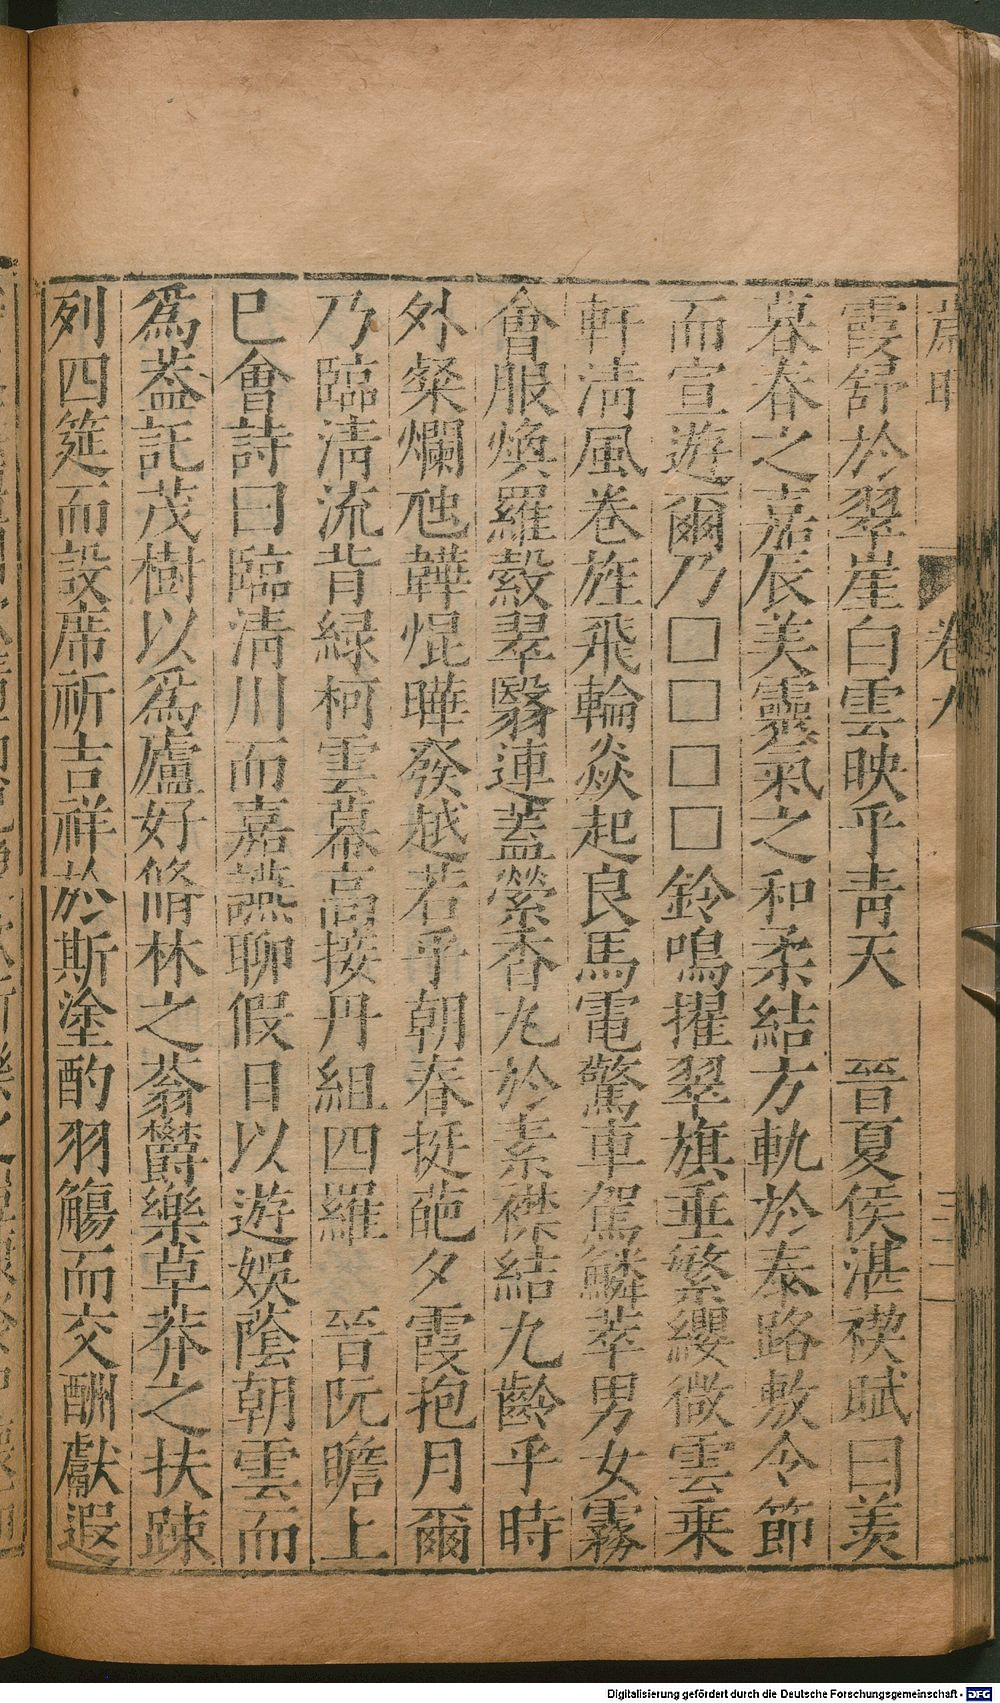 卷九
霞舒於翠崖白雲映乎靑天　晉夏侯湛禊賦曰羡
暮春之嘉辰美靈氣之和柔結方軌於泰路敷令節
而宣遊爾乃□□□□鈴鳴擢翠旗垂繁纓微雲乗
軒淸風卷旌飛輪焱起良馬電驚車駕鱗萃男女霧
會服煥羅縠翠翳連蓋縈香九於素襟結九齡乎時
外粲爛虺韡焜曄發越若乎朝春挺葩夕霞抱月爾
乃臨淸流背緑柯雲幕高接丹組四羅　晉阮瞻上
巳會詩曰臨淸川而嘉讌聊假日以遊娛蔭朝雲而
爲葢託茂樹以爲廬好脩林之蓊欝樂草莽之扶踈
列四筵而設席祈吉祥於斯塗酌羽觴而交酬獻遐
Digitalisierung gefördert durch die Deutsche Forschungsgemeinschaft - DFG